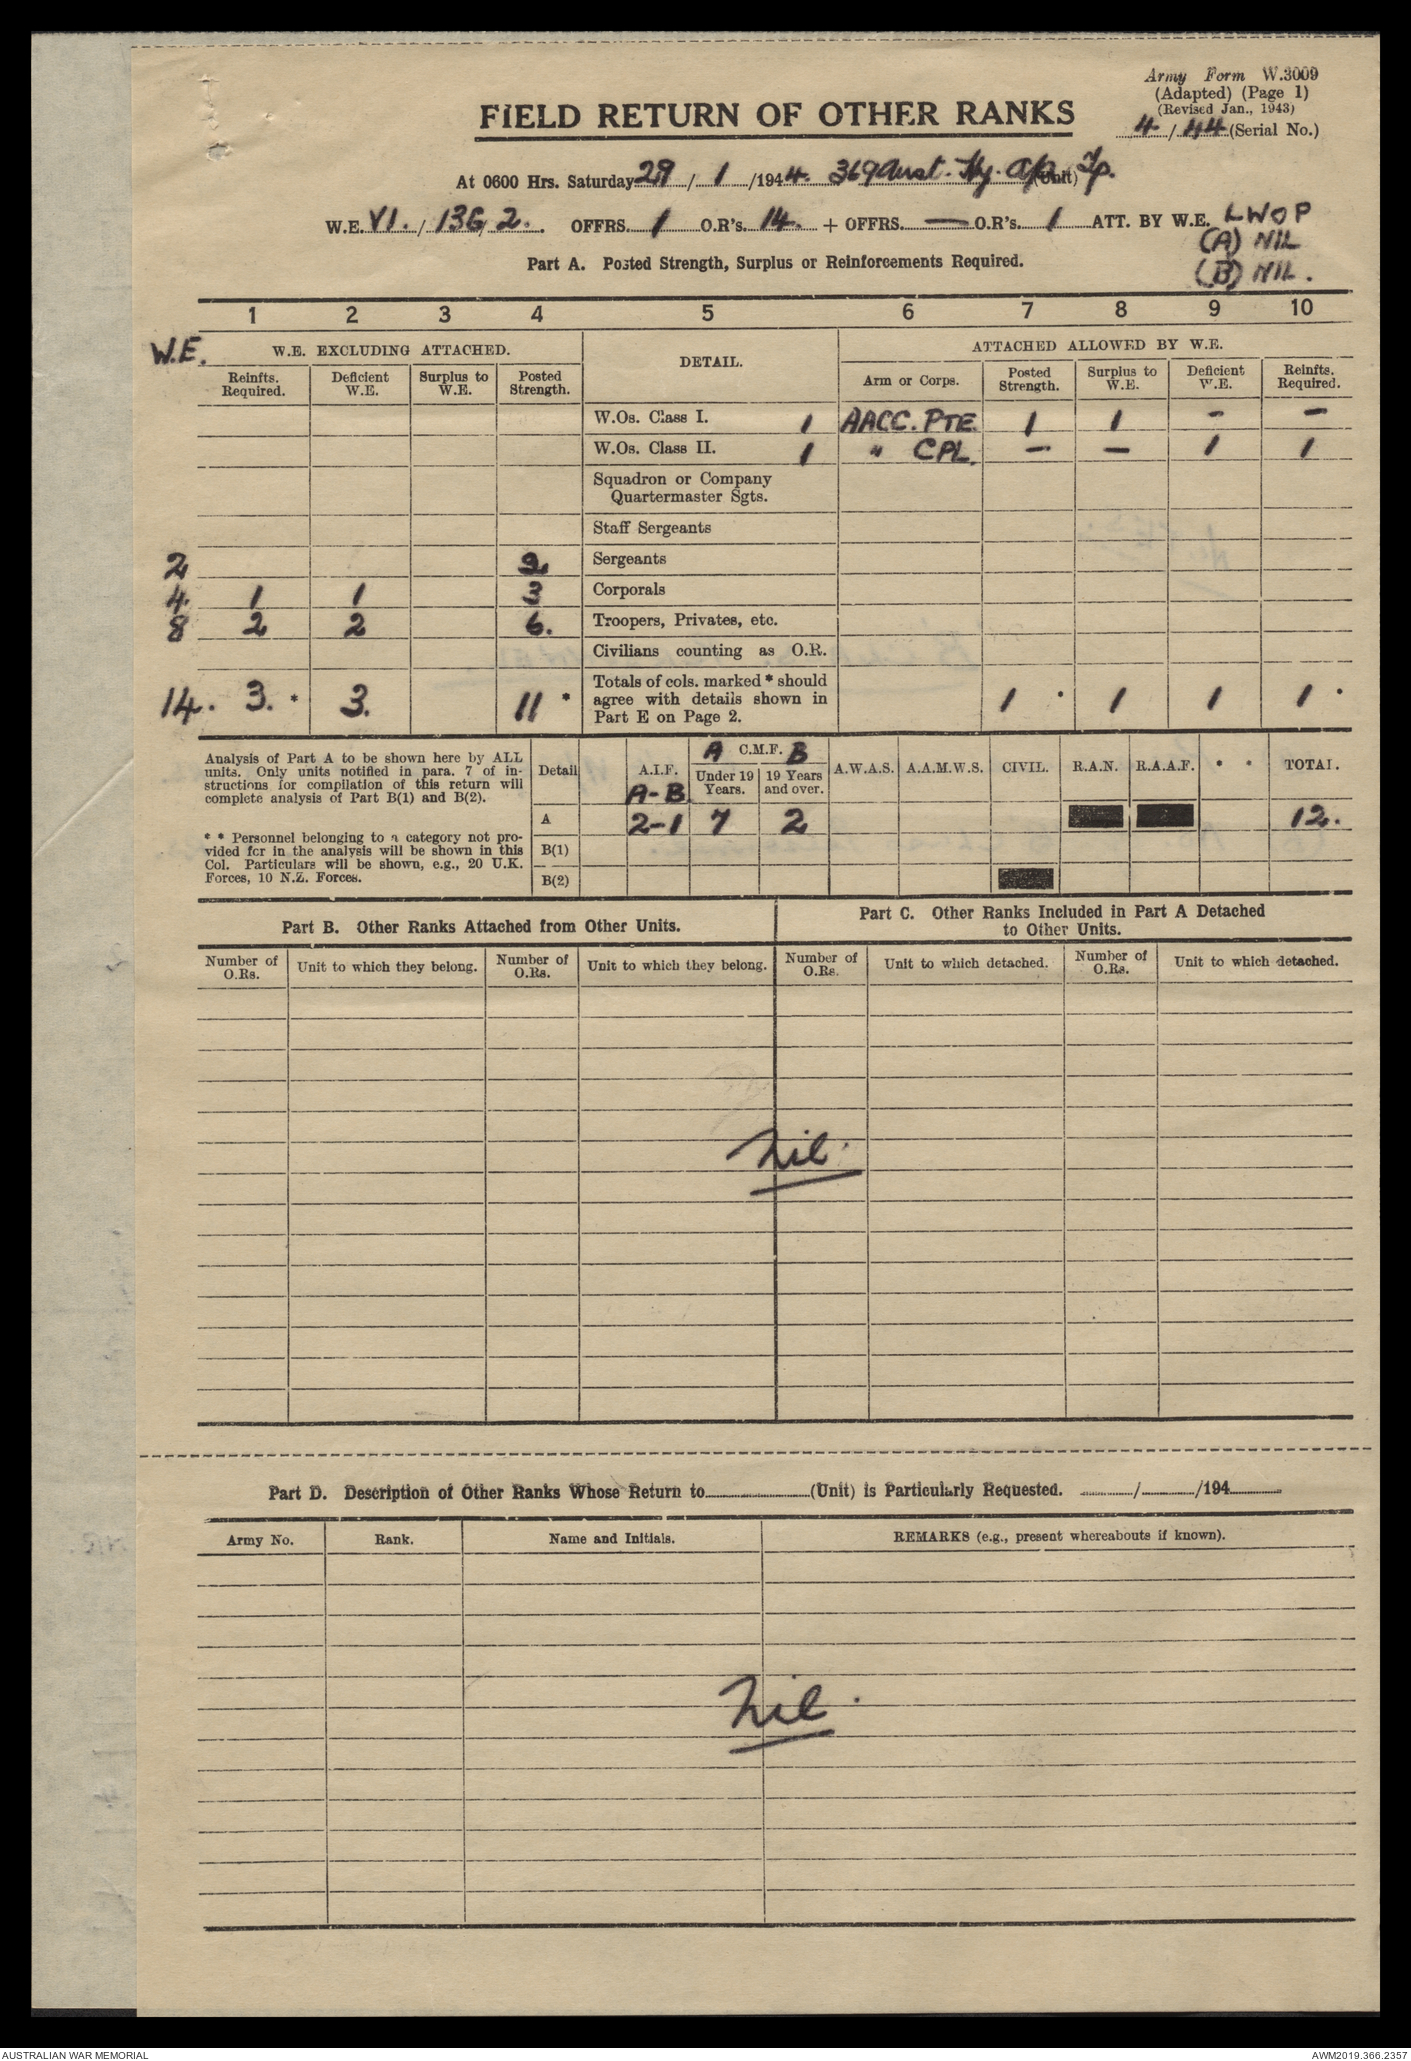 Army Form W.3009
(Adapted) (Page 1)
(Revised Jan., 1943)
4 / 44 (Serial No.)
FIELD RETURN OF OTHER RANKS
At 0600 Hrs. Saturday 29 / 1 /1944. 369 Aust. Hy. A/A (Unit) Tp.
W.E. VI. / 13G / 2. OFFRS. 1 O.R's. 14. + OFFRS. — O.R's. 1 ATT. BY W.E. LWOP
(A) NIL
(B) NIL.
Part A. Posted Strength, Surplus or Reinforcements Required.
1 2 3 4 5 6 7 8 9 10
W.E. W.E. EXCLUDING ATTACHED. DETAIL. ATTACHED ALLOWED BY W.E.
Reinfts. Required. Deficient W.E. Surplus to W.E. Posted Strength. Arm or Corps. Posted Strength. Surplus to W.E. Deficient W.E. Reinfts. Required.
W.Os. Class I. 1 AACC. PTE. 1 1 - -
W.Os. Class II. 1 " CPL. - - 1 1
Squadron or Company
Quartermaster Sgts.
Staff Sergeants
2 2 Sergeants
4 1 1 3 Corporals
8 2 2 6. Troopers, Privates, etc.
Civilians counting as O.R.
14. 3. * 3. 11 * Totals of cols. marked * should
agree with details shown in
Part E on Page 2. 1 . 1 1 1 .
Analysis of Part A to be shown here by ALL
units. Only units notified in para. 7 of in-
structions for compilation of this return will
complete analysis of Part B(1) and B(2).
* * Personnel belonging to a category not pro-
vided for in the analysis will be shown in this
Col. Particulars will be shown, e.g., 20 U.K.
Forces, 10 N.Z. Forces.
Detail A.I.F. A-B A C.M.F. B Under 19 Years. 19 Years and over. A.W.A.S. A.A.M.W.S. CIVIL. R.A.N. R.A.A.F. * * TOTAL.
A 2-1 7 2 12.
B(1)
B(2)
Part B. Other Ranks Attached from Other Units.
Part C. Other Ranks Included in Part A Detached
to Other Units.
Number of O.Rs. Unit to which they belong. Number of O.Rs. Unit to which they belong. Number of O.Rs. Unit to which detached. Number of O.Rs. Unit to which detached.
Nil.
Part D. Description of Other Ranks Whose Return to (Unit) is Particularly Requested. / /194
Army No. Rank. Name and Initials. REMARKS (e.g., present whereabouts if known).
Nil.
AUSTRALIAN WAR MEMORIAL
AWM2019.366.2357